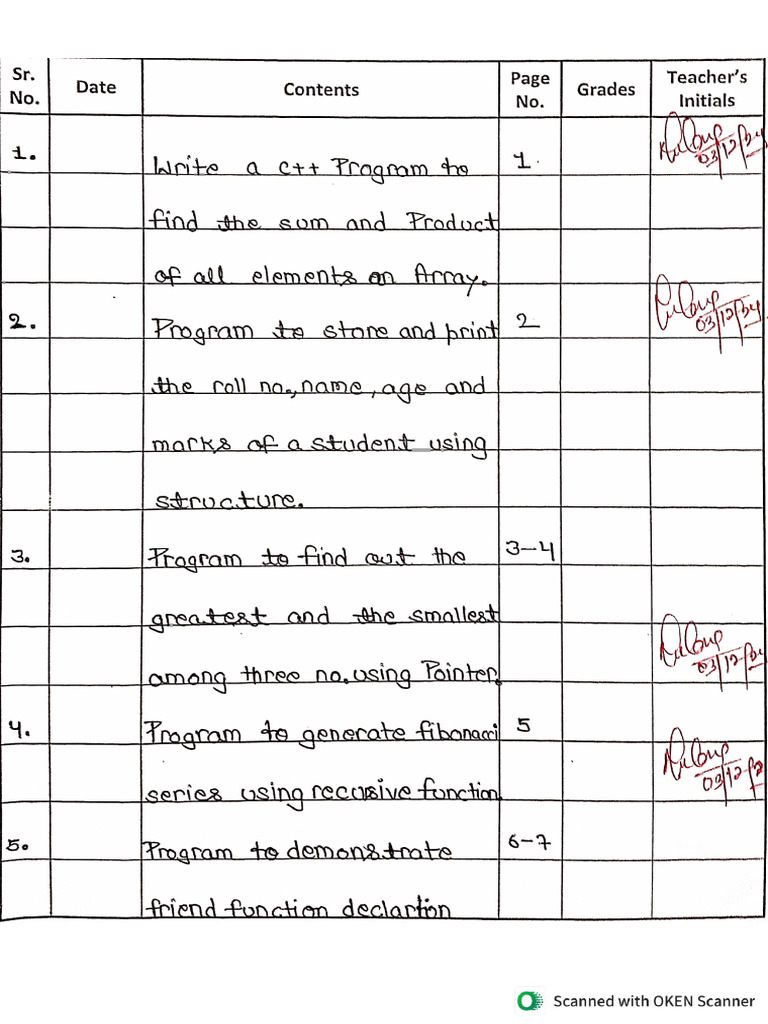 Sr. No. Date Contents Page No. Grades Teacher's Initials
1. Write a C++ Program to 1.
find the sum and Product
of all elements on Array.
2. Program to store and print 2
the roll no., name, age and
marks of a student using
structure.
3. Program to find out the 3-4
greatest and the smallest
among three no. using Pointer.
4. Program to generate fibonacci 5
series using recusive function
5. Program to demonstrate 6-7
friend function declartion
03/12/24
03/12/24
03/12/24
03/12/2
Scanned with OKEN Scanner